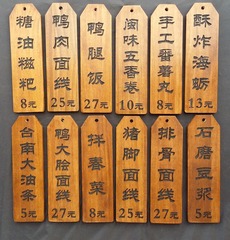 糖油糍粑
8元
鸭肉面线
25元
鸭腿饭
27元
闽味五香卷
10元
手工番薯丸
8元
酥炸海蛎
13元
台南大油条
5元
鸭大脍面线
27元
拌春菜
8元
猪脚面线
25元
排骨面线
27元
石磨豆浆
5元